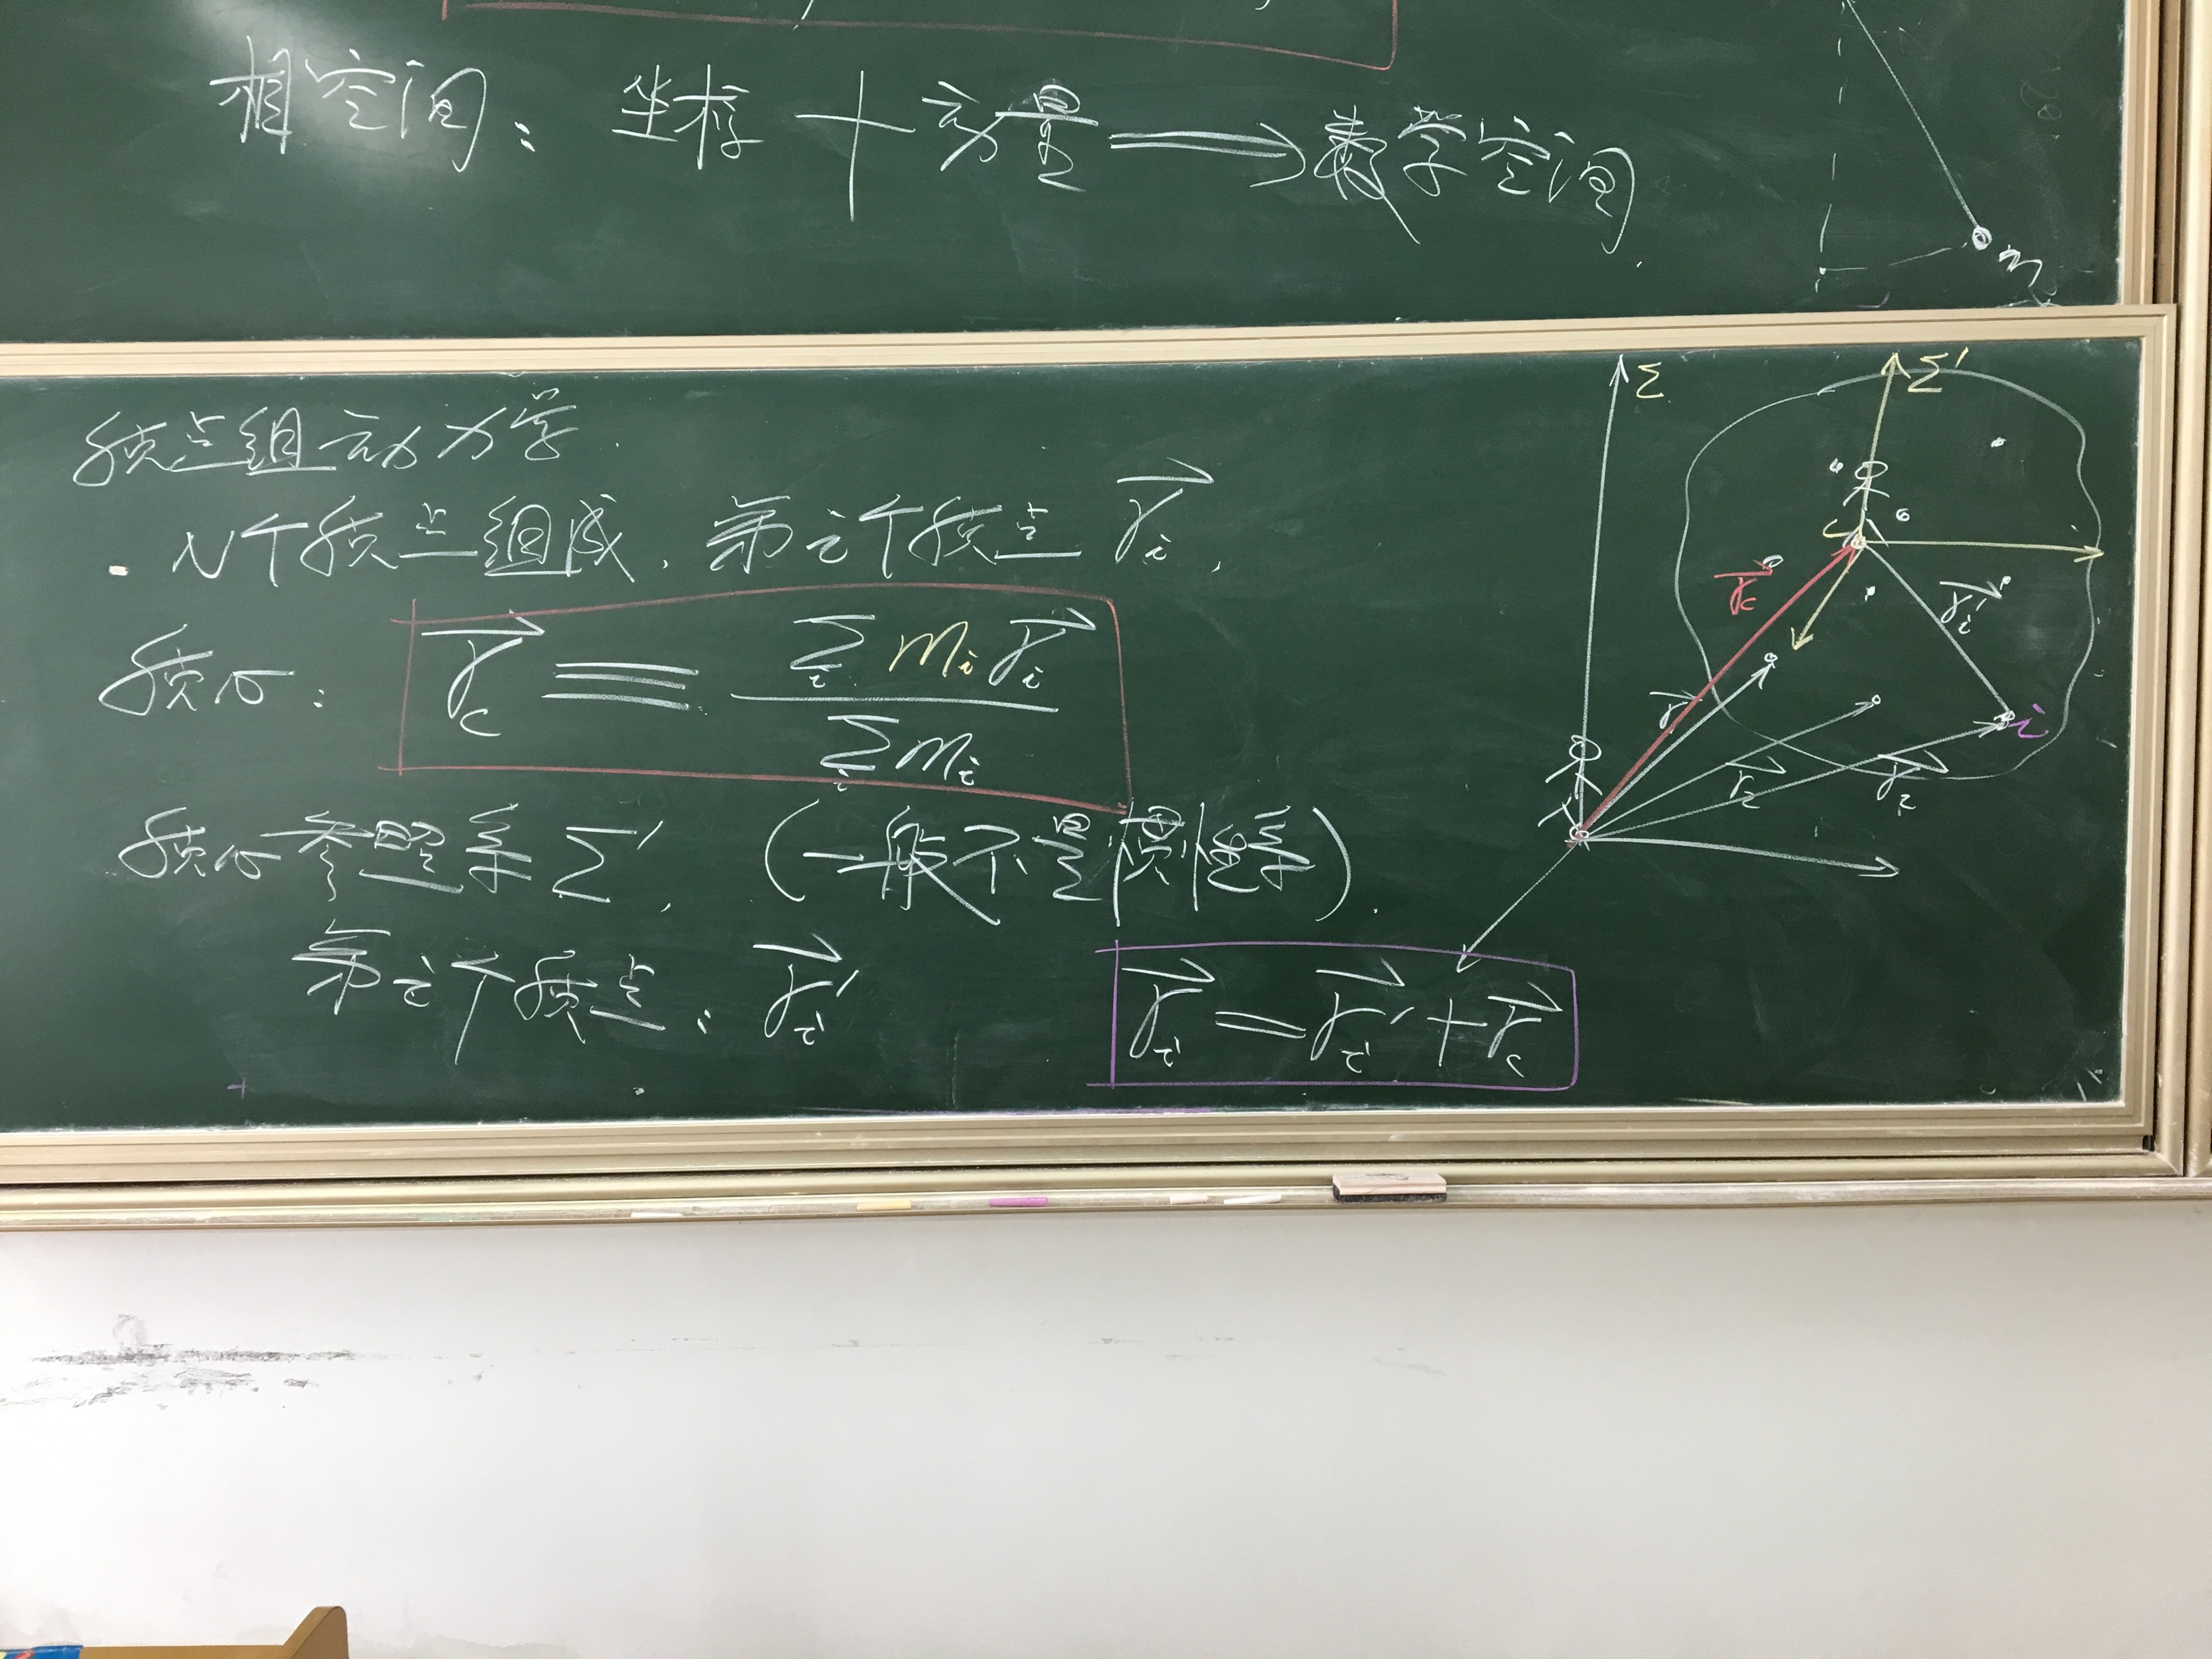 相空间：坐标 + 动量 ⟹ 数学空间.
m
质点组动力学.
N个质点组成, 第i个质点 $\vec{r}_i$,
质心: $\vec{r}_c \equiv \frac{\sum_i m_i \vec{r}_i}{\sum_i m_i}$
质心参照系 Σ′, (一般不是惯性系).
第i个质点: $\vec{r}_i'$
$\vec{r}_i = \vec{r}_i' + \vec{r}_c$
Σ
Σ′
c
$\vec{r}_c$
$\vec{r}_i'$
i
$\vec{r}_2$
$\vec{r}_i$